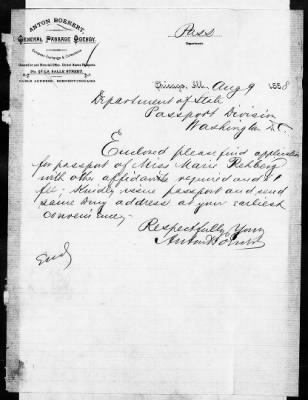 ANTON BOENERT,
GENERAL PASSAGE AGENCY.
Foreign Exchange & Collections
LA SALLE STREET,
CABLE ADDRESS,
Pass
Department
Chicago, Ill. Aug 9 1888
Department of State
Passport Division
Washington D.C.
Enclosed please find application
for passport of Miss Marie Rehberg
with other affidavits required and $1
fee; Kindly issue passport and send
same to my address at your earliest
convenience,
Respectfully Yours
Anton Boenert
Encl